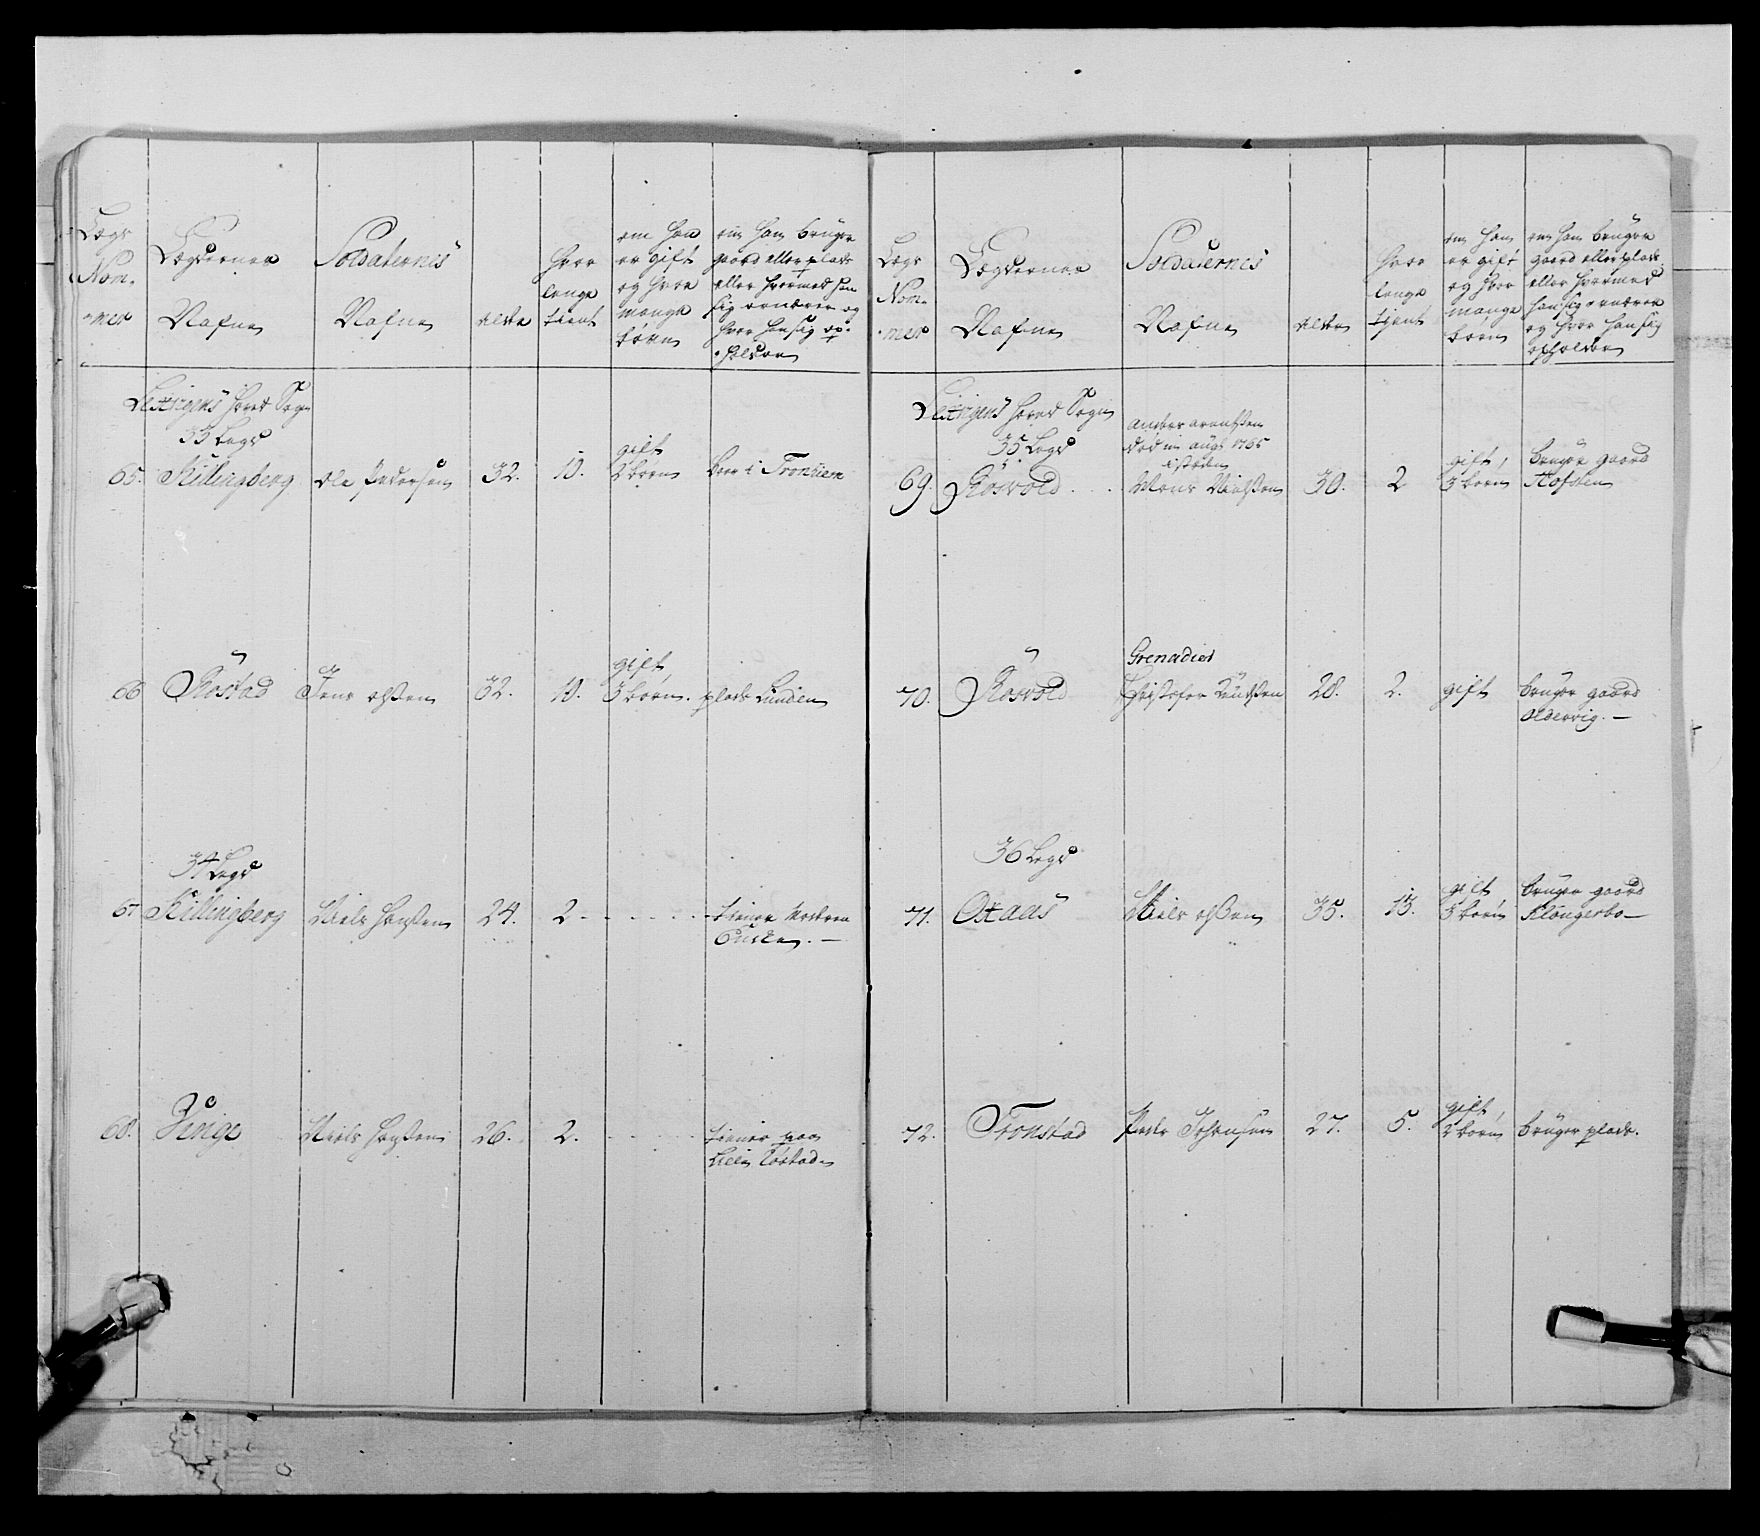 Legs
Nom-
-mer
Legdernes
Nafne
Soldaternes
Nafne
alder
hvor
lenge
tient
om han
er gift
og hvor
mange
børn
om han bruger
gaard eller plads
eller hvormed han
sig ernærer og
hvor han sig op-
-holder
Hoved Sogn
33 Legd
65. Killingberg Ole Pedersen 32. 10. gift
2 børn boer i Tronhiem
66 Røstad Jens Olsen 32. 10. gift
3 børn. plads Lunden
34 Legd
67 Killingberg Niels Hansen 24. 2. tiener
68. Vinge Niels Hansen 26. 2. tiener paa
Røstad
Legs
Nom-
-mer
Legdernes
Nafne
Soldaternes
Nafne
alder
hvor
lenge
tjent
om han
er gift
og hvor
mange
børn
om han bruger
gaard eller plads
eller hvormed
han sig ernærer
og hvor han sig
opholder
Hoved Sogn
35 Legd
Anders Arentsen
død in aug 1765
69. Røsvold Mons Nielsen 30. 2 gift,
3 børn bruger gaard
Hofsten
Grenadier
70. Røsvold Christofer Knudsen 28. 2. gift bruger gaard
Oldervig.
36 Legd
71. Oxaas Niels Olsen 35. 15. gift
3 børn bruger gaard
Klongerbo
72. Tronstad Peder Johansen 27. 5. gift,
2 børn bruger plads.